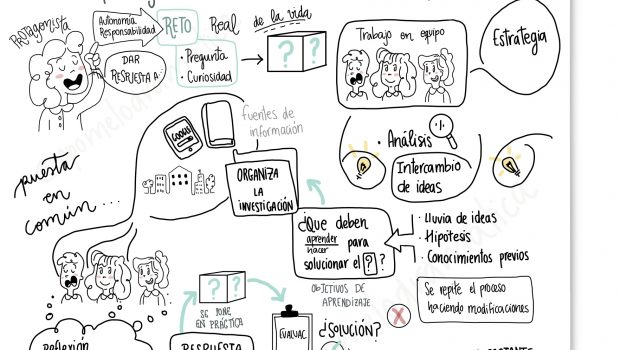 Protagonista
Autonomía
Responsabilidad
RETO
Real
de la vida
DAR
RESPUESTA A:
• Pregunta
• Curiosidad
? ?
Trabajo en equipo
Estrategia
GOOGLE
fuentes de
información
• Análisis
Intercambio
de ideas
ORGANIZA
LA
INVESTIGACIÓN
puesta
en
común...
¿Que deben
aprender
hacer
para
solucionar el ? ?
• Lluvia de ideas
• Hipótesis
• Conocimientos previos
OBJETIVOS DE
APRENDIZAJE
Se repite el proceso
haciendo modificaciones
? ?
SE PONE
EN PRÁCTICA
EVALUAC
¿SOLUCIÓN?
X
Reflexión
RESPUESTA